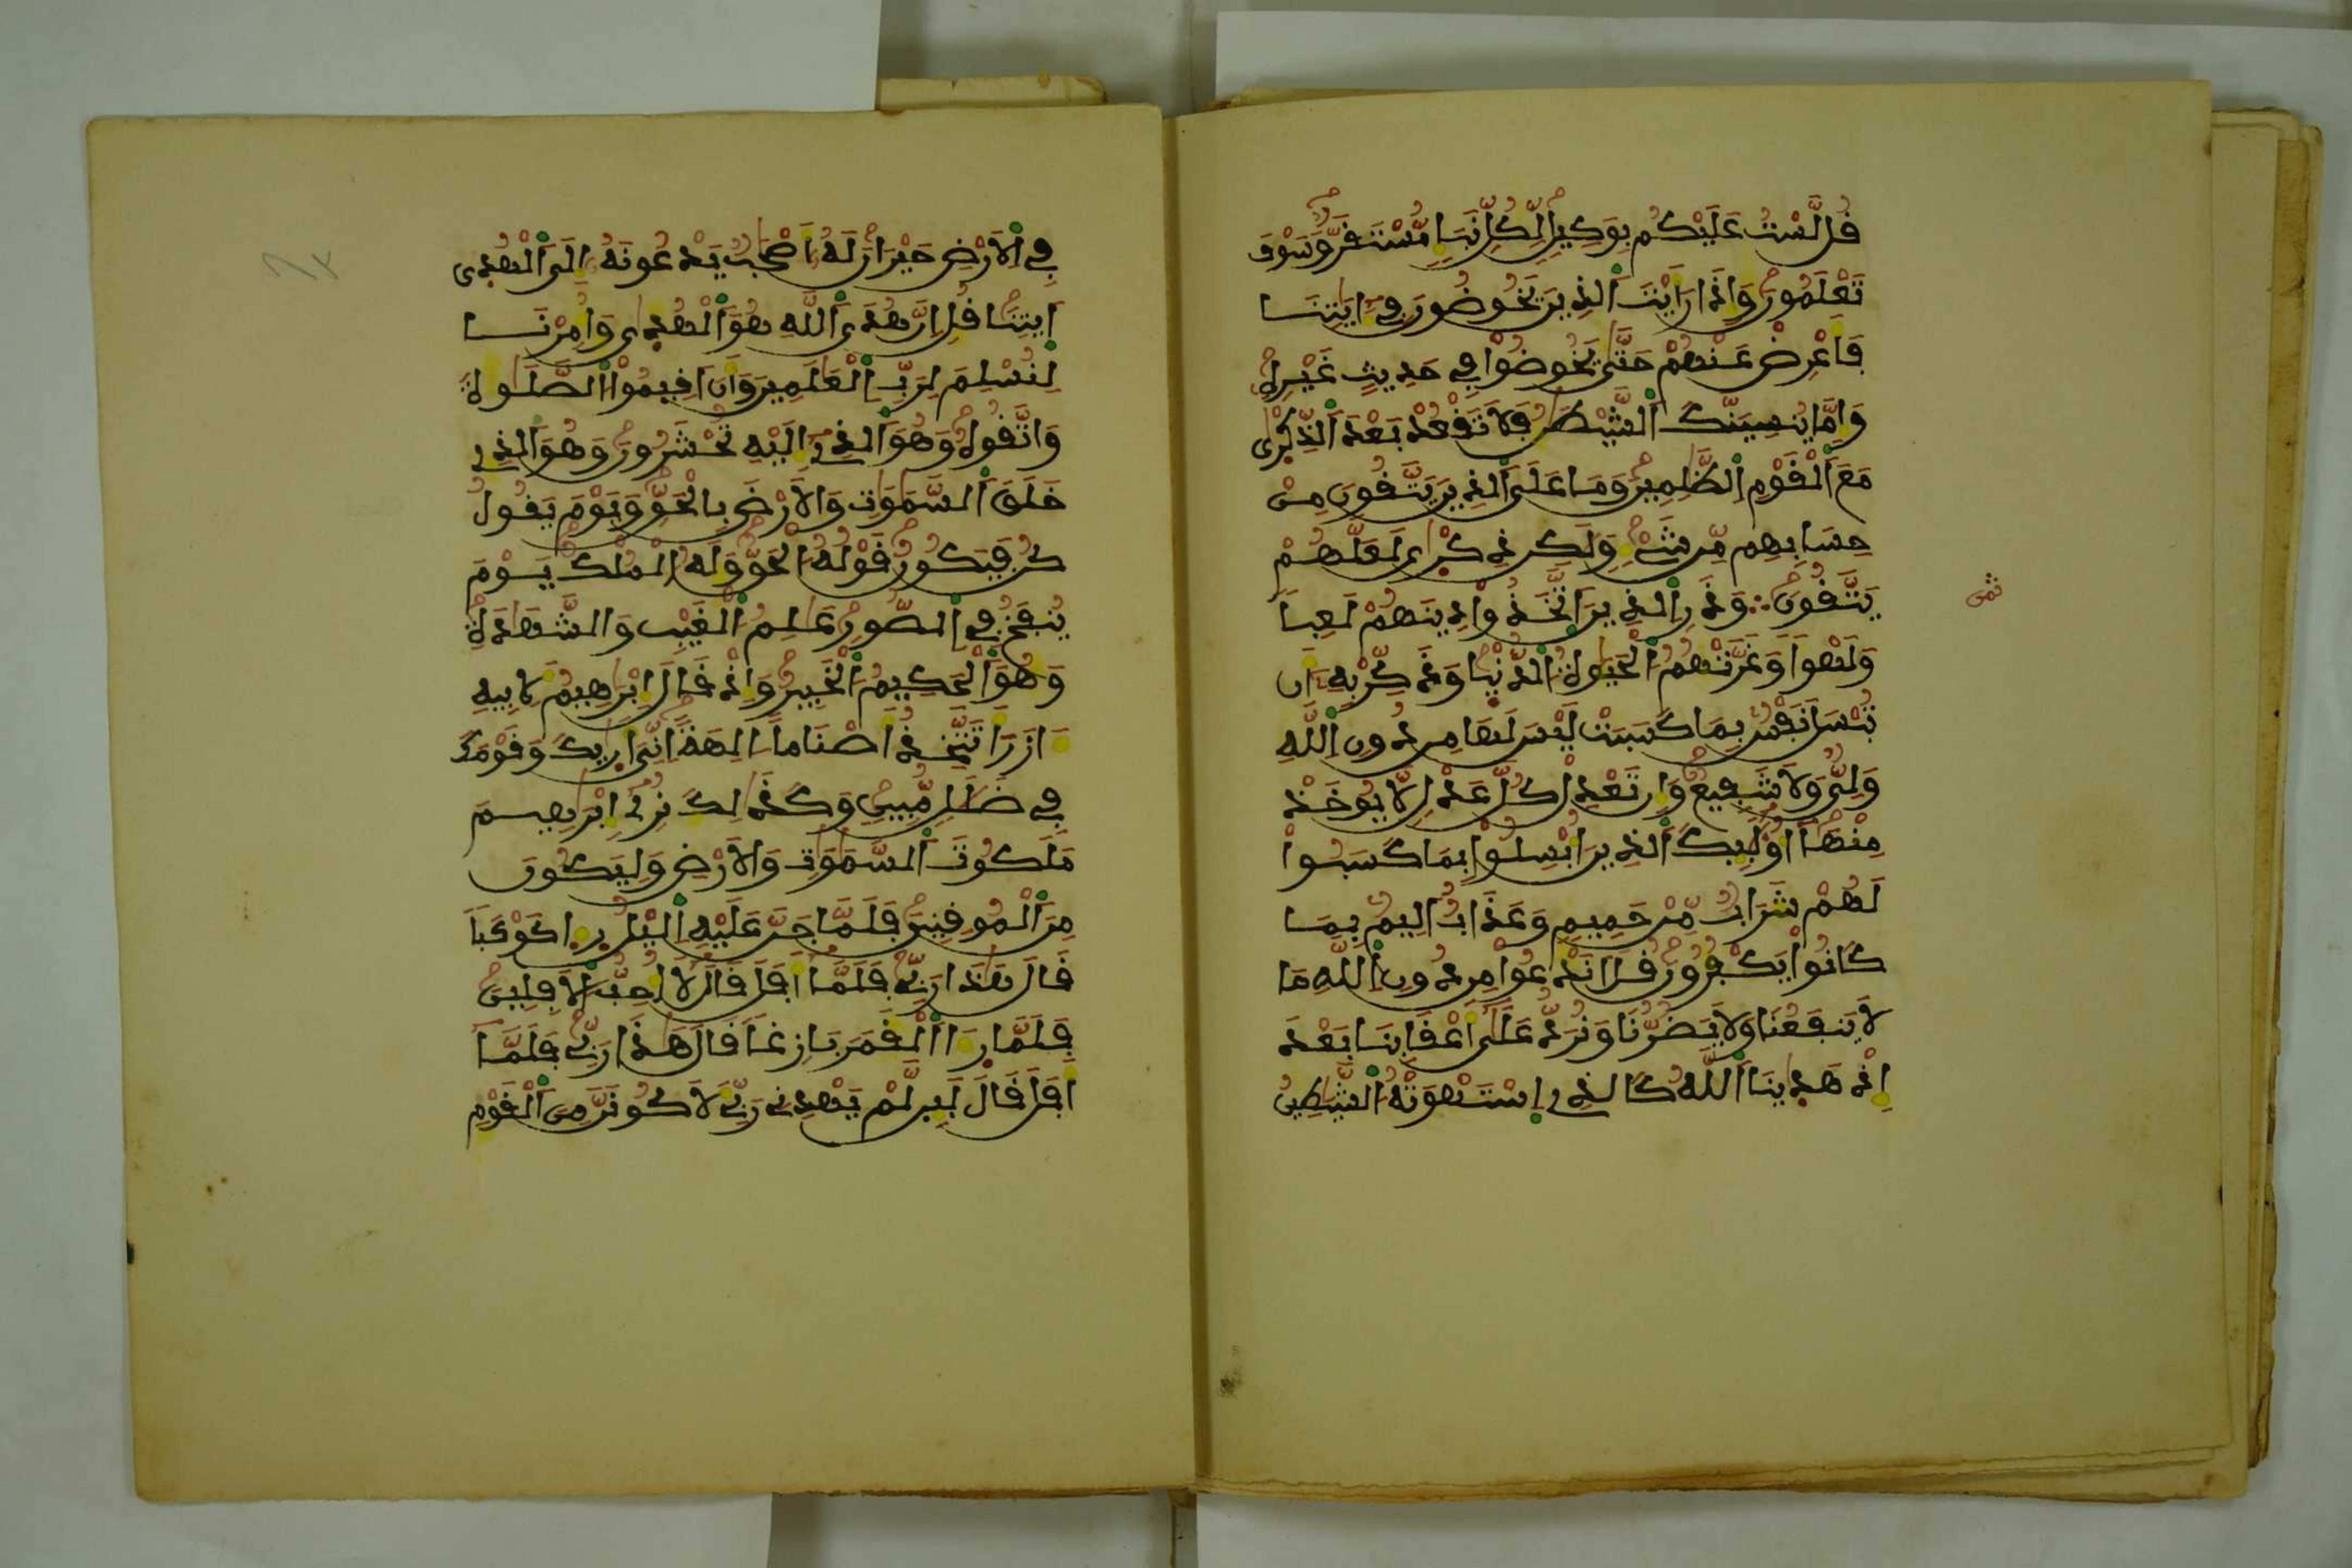 قُل لَّسْتُ عَلَيْكُم بِوَكِيلٍ لِّكُلِّ نَبَإٍ مُّسْتَقَرٌّ وَسَوْفَ
تَعْلَمُونَ وَإِذَا رَأَيْتَ الَّذِينَ يَخُوضُونَ فِي ءَايَتِنَا
فَأَعْرِضْ عَنْهُمْ حَتَّى يَخُوضُوا فِي حَدِيثٍ غَيْرِهِ
وَإِمَّا يُنسِيَنَّكَ الشَّيْطَنُ فَلَا تَقْعُدْ بَعْدَ الذِّكْرَى
مَعَ الْقَوْمِ الظَّلِمِينَ وَمَا عَلَى الَّذِينَ يَتَّقُونَ مِنْ
حِسَابِهِم مِّن شَيْءٍ وَلَكِن ذِكْرَى لَعَلَّهُمْ
يَتَّقُونَ ۞ وَذَرِ الَّذِينَ اتَّخَذُوا دِينَهُمْ لَعِباً
وَلَهْواً وَغَرَّتْهُمُ الْحَيَوةُ الدُّنْيَا وَذَكِّرْ بِهِ أَن
تُبْسَلَ نَفْسٌ بِمَا كَسَبَتْ لَيْسَ لَهَا مِن دُونِ اللَّهِ
وَلِيٌّ وَلَا شَفِيعٌ وَإِن تَعْدِلْ كُلَّ عَدْلٍ لَّا يُوخَذْ
مِنْهَا أُوْلَئِكَ الَّذِينَ أُبْسِلُوا بِمَا كَسَبُوا
لَهُمْ شَرَابٌ مِّنْ حَمِيمٍ وَعَذَابٌ أَلِيمٌ بِمَا
كَانُوا يَكْفُرُونَ قُلْ أَنَدْعُوا مِن دُونِ اللَّهِ مَا
لَا يَنفَعُنَا وَلَا يَضُرُّنَا وَنُرَدُّ عَلَى أَعْقَابِنَا بَعْدَ
إِذْ هَدَينَا اللَّهُ كَالَّذِي اسْتَهْوَتْهُ الشَّيَطِينُ
ثمن
فِي الْأَرْضِ حَيْرَانَ لَهُ أَصْحَبٌ يَدْعُونَهُ إِلَى الْهُدَى
ايتِنَا قُلْ إِنَّ هُدَى اللَّهِ هُوَ الْهُدَى وَأُمِرْنَا
لِنُسْلِمَ لِرَبِّ الْعَلَمِينَ وَأَنْ أَقِيمُوا الصَّلَوةَ
وَاتَّقُوهُ وَهُوَ الَّذِي إِلَيْهِ تُحْشَرُونَ وَهُوَ الَّذِي
خَلَقَ السَّمَوَتِ وَالْأَرْضَ بِالْحَقِّ وَيَوْمَ يَقُولُ
كُن فَيَكُونُ قَوْلُهُ الْحَقُّ وَلَهُ الْمُلْكُ يَوْمَ
يُنفَخُ فِي الصُّورِ عَلِمُ الْغَيْبِ وَالشَّهَدَةِ
وَهُوَ الْحَكِيمُ الْخَبِيرُ وَإِذْ قَالَ إِبْرَهِيمُ لِأَبِيهِ
ءَازَرَ أَتَتَّخِذُ أَصْنَاماً الِهَةً إِنِّي أَرَيكَ وَقَوْمَكَ
فِي ضَلَلٍ مُّبِينٍ وَكَذَلِكَ نُرِي إِبْرَهِيمَ
مَلَكُوتَ السَّمَوَتِ وَالْأَرْضِ وَلِيَكُونَ
مِنَ الْمُوقِنِينَ فَلَمَّا جَنَّ عَلَيْهِ الَّيْلُ رَءَا كَوْكَباً
قَالَ هَذَا رَبِّي فَلَمَّا أَفَلَ قَالَ لَا أُحِبُّ الْأَفِلِينَ
فَلَمَّا رَءَا الْقَمَرَ بَازِغاً قَالَ هَذَا رَبِّي فَلَمَّا
أَفَلَ قَالَ لَئِن لَّمْ يَهْدِنِي رَبِّي لَأَكُونَنَّ مِنَ الْقَوْمِ